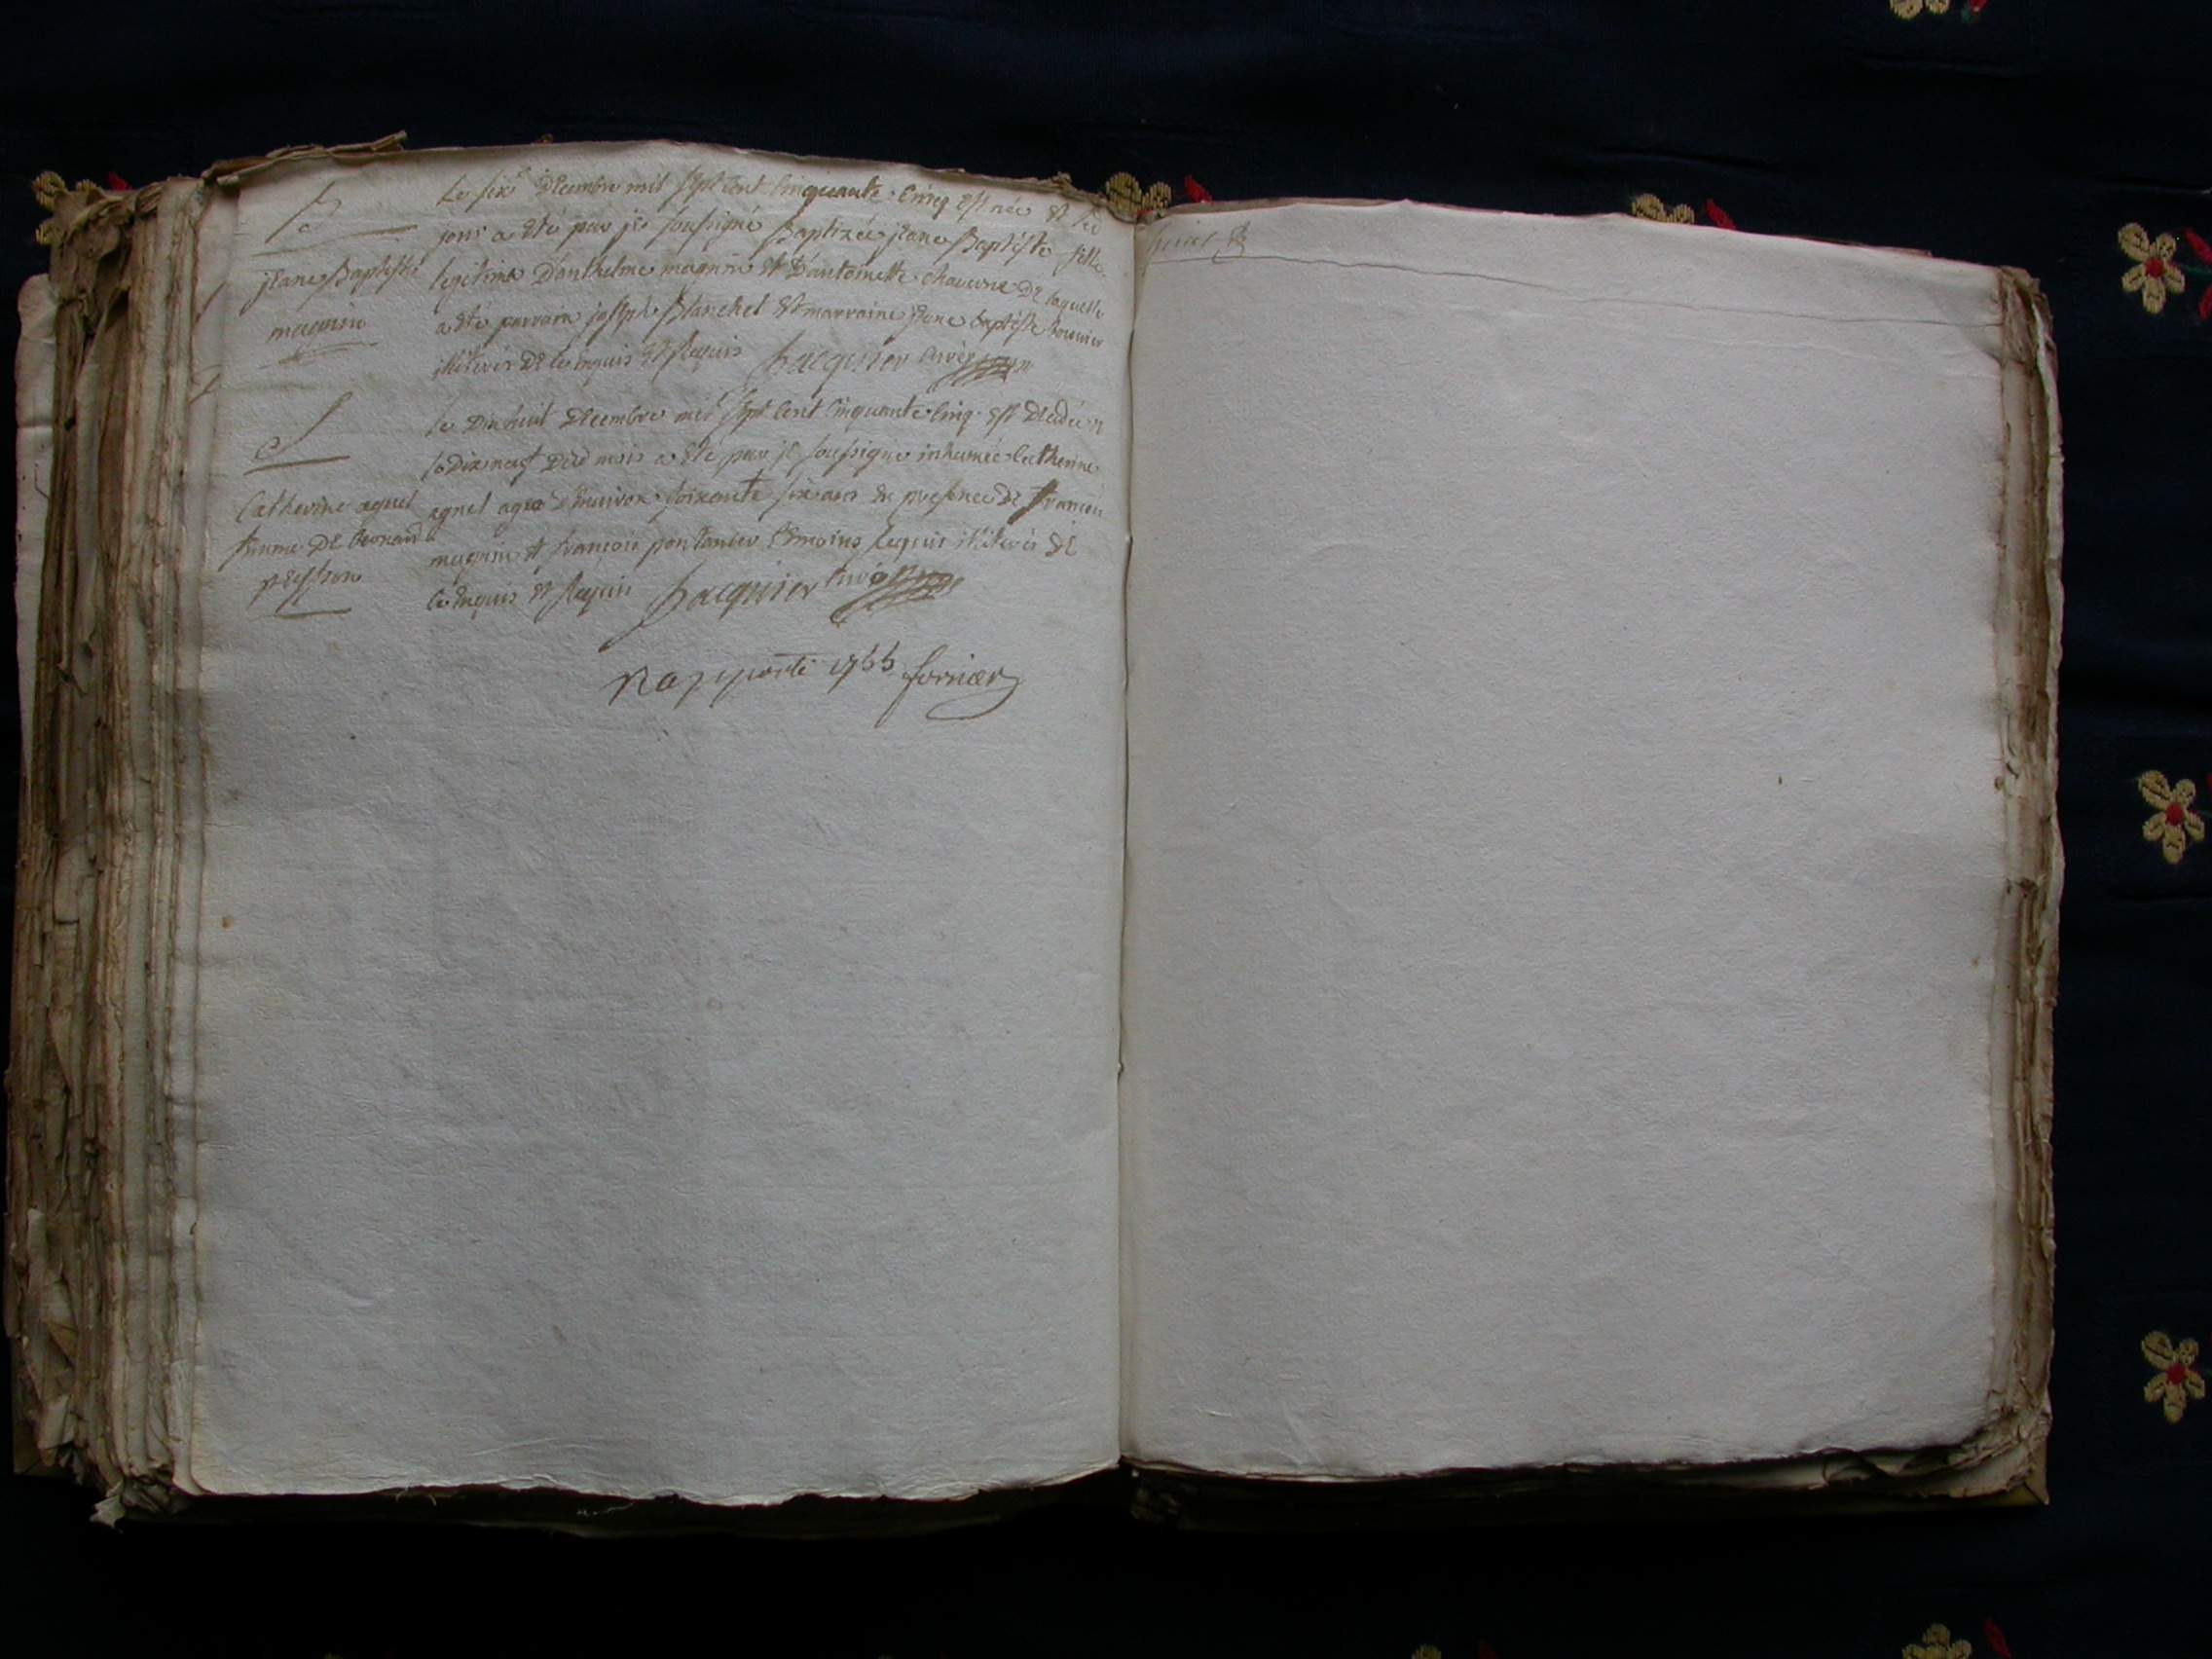 B
jeane Baptiste
magnin
Le six decembre mil sept cent cinquante cinq est née et led
jour a eté par je soussigné Baptizée jeane Baptiste fille
legitime d'anthelme magnin et d'antoinette chavanne de laquelle
a eté parrain joseph Blanchet et marraine jeane baptiste
illiterés de ce enquis et requis Jacquier curé
S
Catherine agnel
femme de bernard
le dixhuit decembre mil sept cent cinquante cinq est decedée et
le dixneuf dud mois a eté par je soussigné inhumée Catherine
agnel agée d'environ soixante six ans en presence de francois
magnin et francois pontanier temoins requis illiterés de
ce enquis et requis Jacquier curé
Rapporté 1755 fornier